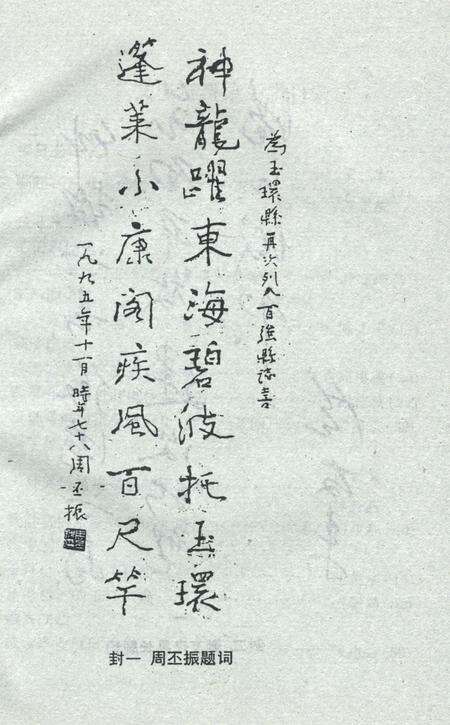 為玉環縣再次列入百强縣誌喜
神龍躍東海碧波托玉環
蓬莱小康阁疾风百尺竿
一九九五年十一月時年七十八周丕振
封一 周丕振题词